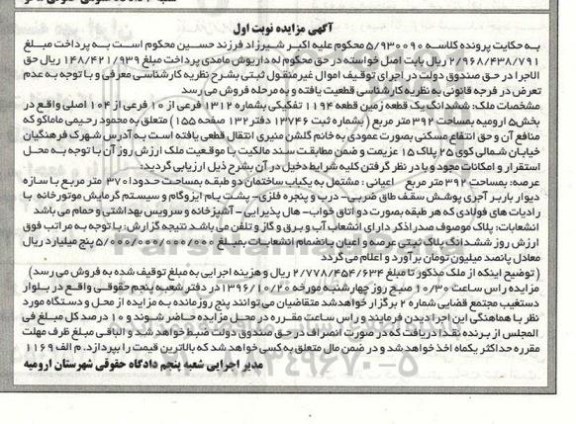 آگهی مزایده نوبت اول
به حکایت پرونده کلاسه ۵/۹۳۰۰۹۰ محکوم علیه اکبر شیرزاد فرزند حسین محکوم است به پرداخت مبلغ
۲/۹۶۸/۴۳۸/۷۹۱ ریال بابت اصل خواسته در حق محکوم له داریوش مامدی پرداخت مبلغ ۱۴۸/۴۲۱/۹۳۹ ریال حق
الاجرا در حق صندوق دولت در اجرای توقیف اموال غیرمنقول ثبتی بشرح نظریه کارشناسی معرفی و با توجه به عدم
تعرض در فرجه قانونی به نظریه کارشناسی قطعیت یافته و به مرحله فروش می رسد
مشخصات ملک: ششدانگ یک قطعه زمین قطعه ۱۱۹۴ تفکیکی بشماره ۱۳۱۲ فرعی از ۱۰ فرعی از ۱۰۴ اصلی واقع در
بخش۵ ارومیه بمساحت ۳۹۲ متر مربع ( بشماره ثبت ۱۳۷۴۶ دفتر۱۳۲ صفحه ۱۵۵) متعلق به محمود رحیمی ماماکو که
منافع آن و حق انتفاع مسکنی بصورت عمودی به خانم گلشن منیری انتقال قطعی یافته است به آدرس شهرک فرهنگیان
خیابان شمالی کوی ۲۵ پلاک ۱۵ عزیمت و ضمن مطابقت سند مالکیت با موقعیت ملک ارزش روز آن با توجه به محل
استقرار و امکانات موجود و با در نظر گرفتن کلیه شرایط دخیل در آن بشرح ذیل ارزیابی گردید:
عرصه: بمساحت ۳۹۲ متر مربع اعیانی : مشتمل به یکباب ساختمان دو طبقه بمساحت حدودا ۳۷۰ متر مربع با سازه
دیوار باربر آجری پوشش سقف طاق ضربی- درب و پنجره فلزی- پشت بام ایزوگام و سیستم گرمایش موتورخانه با
رادیات های فولادی که هر طبقه بصورت دو اتاق خواب- هال پذیرایی- آشپزخانه و سرویس بهداشتی و حمام می باشد
انشعابات: پلاک موصوف صدرالذکر دارای انشعاب آب و برق و گاز و تلفن می باشد نتیجه گزارش: با توجه به مراتب فوق
ارزش روز ششدانگ پلاک ثبتی عرصه و اعیان بانضمام انشعابات بمبلغ ۵/۰۰۰/۰۰۰/۰۰۰/۰۰۰ پنج میلیارد ریال
معادل پانصد میلیون تومان برآورد و اعلام می گردد
( توضیح اینکه از ملک مذکور تا مبلغ ۲/۷۷۸/۴۵۴/۶۳۴ ریال و هزینه اجرایی به مبلغ توقیف شده به فروش می رسد)
مزایده راس ساعت ۱۰/۳۰ صبح روز چهارشنبه مورخه ۱۳۹۶/۱۰/۲۰ در دفتر شعبه پنجم حقوقی واقع در بلوار
دستغیب مجتمع قضایی شماره ۲ برگزار خواهد شد متقاضیان می توانند پنج روز مانده به مزایده از محل و دستگاه مورد
نظر با هماهنگی این اجرا دیدن فرمایند و راس ساعت مقرره در محل مزایده حاضر شوند و ۱۰ درصد کل مبلغ فی
المجلس از برنده نقدا دریافت که در صورت انصراف در حق صندوق دولت ضبط خواهد شد و الباقی مبلغ ظرف مهلت
مقرره حداکثر یکماه اخذ خواهد شد و در ضمن مال متعلق به کسی خواهد شد که بالاترین قیمت را بپردازد. م الف ۱۱۶۹
مدیر اجرایی شعبه پنجم دادگاه حقوقی شهرستان ارومیه